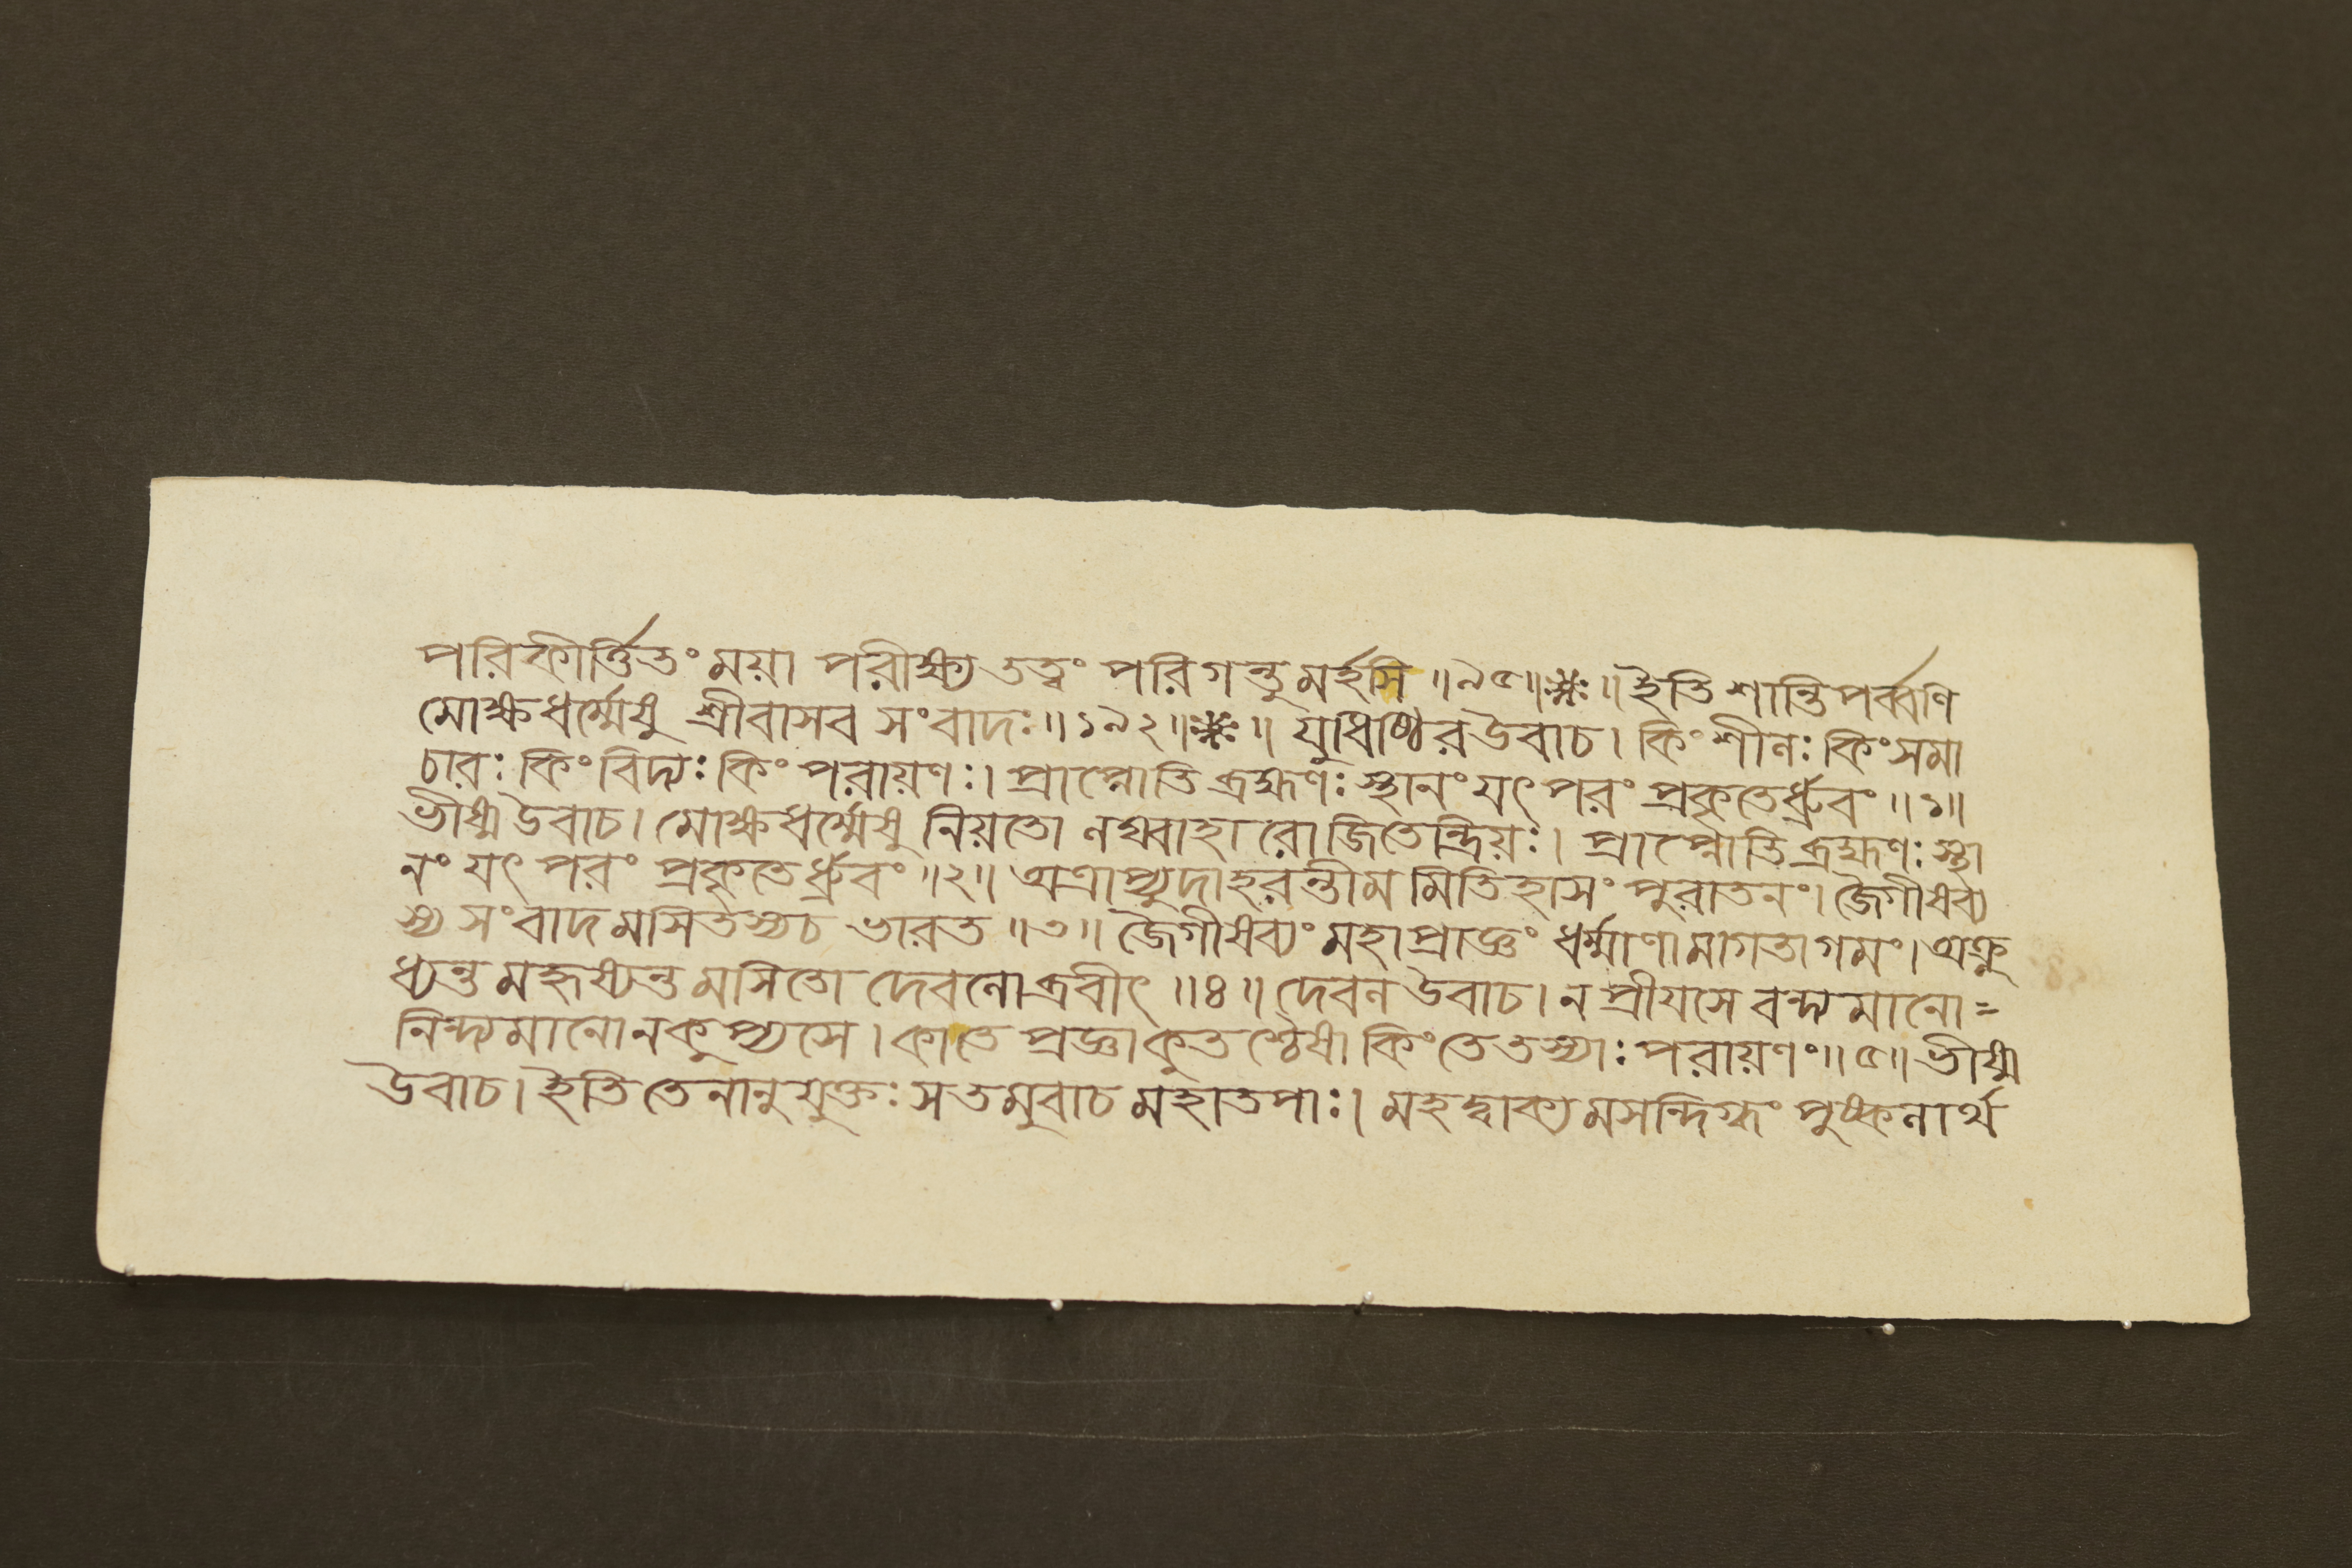 পরিকীর্ত্তিতং ময়া পরীক্ষ্য তত্ত্বং পরিগন্তুমর্হসি ॥৯৫॥❋ঃ॥ ইতি শান্তিপর্ব্বণি
মোক্ষধর্ম্মেষু শ্রীবাসব সংবাদঃ॥১৯২॥❋ঃ॥ যুধিষ্ঠির উবাচ। কিং শীলঃ কিং সমা
চারঃ কিং বিদ্যঃ কিং পরায়ণঃ। প্রাপ্নোতি ব্রহ্মণঃ স্থানং যৎ পরং প্রকৃতের্ধ্রুবং ॥১॥
ভীষ্ম উবাচ। মোক্ষধর্ম্মেষু নিয়তো লঘ্বাহারো জিতেন্দ্রিয়ঃ। প্রাপ্নোতি ব্রহ্মণঃ স্থা
নং যৎ পরং প্রকৃতের্ধ্রুবং ॥২॥ অত্রাপ্যুদাহরন্তীমমিতিহাসং পুরাতনং। জৈগীষব্য
স্য সংবাদমসিতস্য চ ভারত ॥৩॥ জৈগীষব্যং মহাপ্রাজ্ঞং ধর্ম্মাণামাগতাগমং। অক্রু
ধ্যন্তমহৃষ্যন্তমসিতো দেবলোব্রবীৎ ॥৪॥ দেবল উবাচ। ন প্রীয়সে বন্দ্যমানো=
নিন্দ্যমানো ন কুপ্যসে। কা তে প্রজ্ঞা কুতশ্চৈষা কিং তে তস্যাঃ পরায়ণং॥৫॥ ভীষ্ম
উবাচ। ইতি তেনানুযুক্তঃ স তমুবাচ মহাতপাঃ। মহদ্বাক্যমসন্দিগ্ধং পুষ্কলার্থ